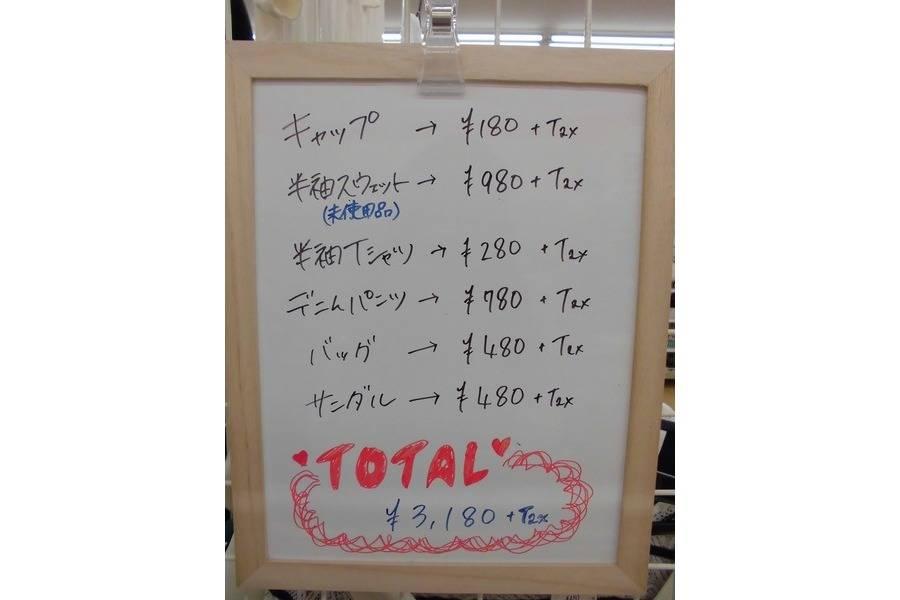 キャップ → ¥180 + Tax
半袖スウェット → ¥980 + Tax
(未使用品)
半袖Tシャツ → ¥280 + Tax
デニムパンツ → ¥780 + Tax
バッグ → ¥480 + Tax
サンダル → ¥480 + Tax
♥TOTAL♥
¥3,180 + Tax